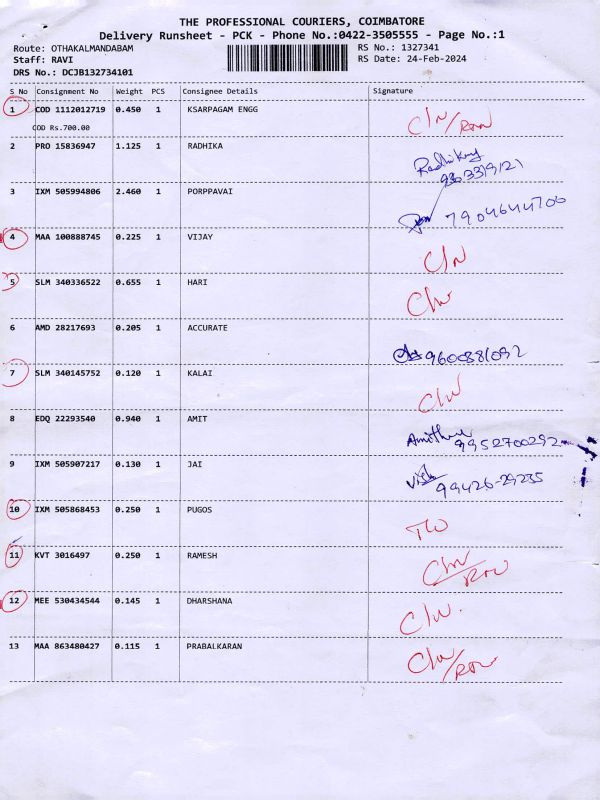 THE PROFESSIONAL COURIERS, COIMBATORE
Delivery Runsheet - PCK - Phone No.:0422-3505555 - Page No.:1
Route: OTHAKALMANDABAM RS No.: 1327341
Staff: RAVI RS Date: 24-Feb-2024
DRS No.: DCJB132734101
S No Consignment No Weight PCS Consignee Details Signature
1 COD 1112012719 0.450 1 KSARPAGAM ENGG
COD Rs.700.00
2 PRO 15836947 1.125 1 RADHIKA
3 IXM 505994806 2.460 1 PORPPAVAI 7904644700
4 MAA 100888745 0.225 1 VIJAY C/N
5 SLM 340336522 0.655 1 HARI
6 AMD 28217693 0.205 1 ACCURATE 9600881092
7 SLM 340145752 0.120 1 KALAI
8 EDQ 22293540 0.940 1 AMIT 9952700292
9 IXM 505907217 0.130 1 JAI 99426-29235
10 IXM 505868453 0.250 1 PUGOS
11 KVT 3016497 0.250 1 RAMESH
12 MEE 530434544 0.145 1 DHARSHANA
13 MAA 863480427 0.115 1 PRABALKARAN